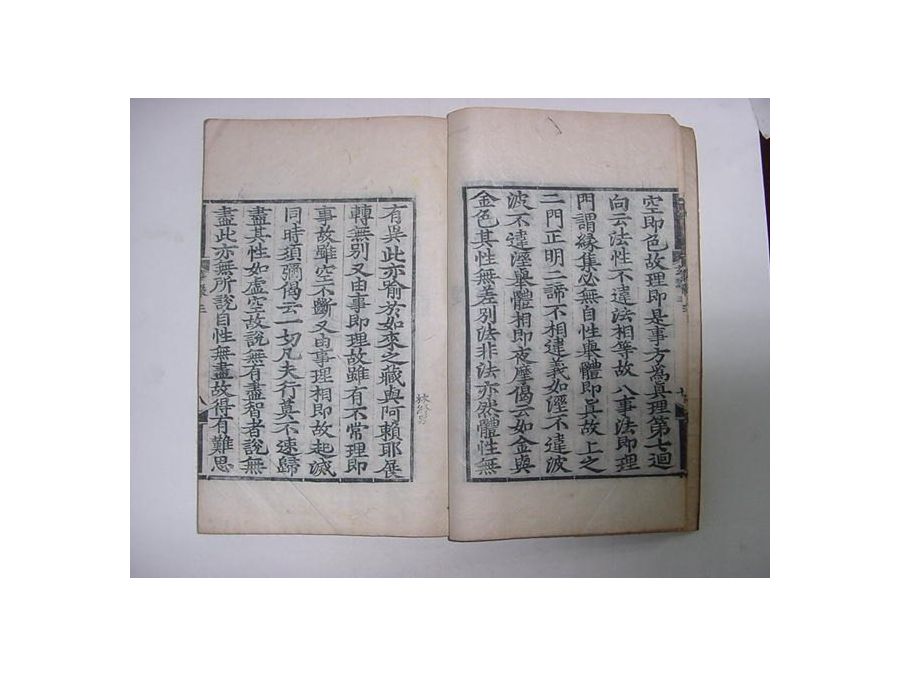 空即色故理即是事方爲真理第七迴
向云法性不違法相等故八事法即理
門謂緣集必無自性舉體即真故上之
二門正明二諦不相違義如溼不違波
波不違溼舉體相即夜摩偈云如金與
金色其性無差別法非法亦然體性無
有異此亦喻於如來之藏與阿賴耶展
轉無別又由事即理故雖有不常理即
事故雖空不斷又由事理相即故起滅
同時須彌偈云一切凡夫行莫不速歸
盡其性如虛空故說無有盡智者說無
盡此亦無所說自性無盡故得有難思